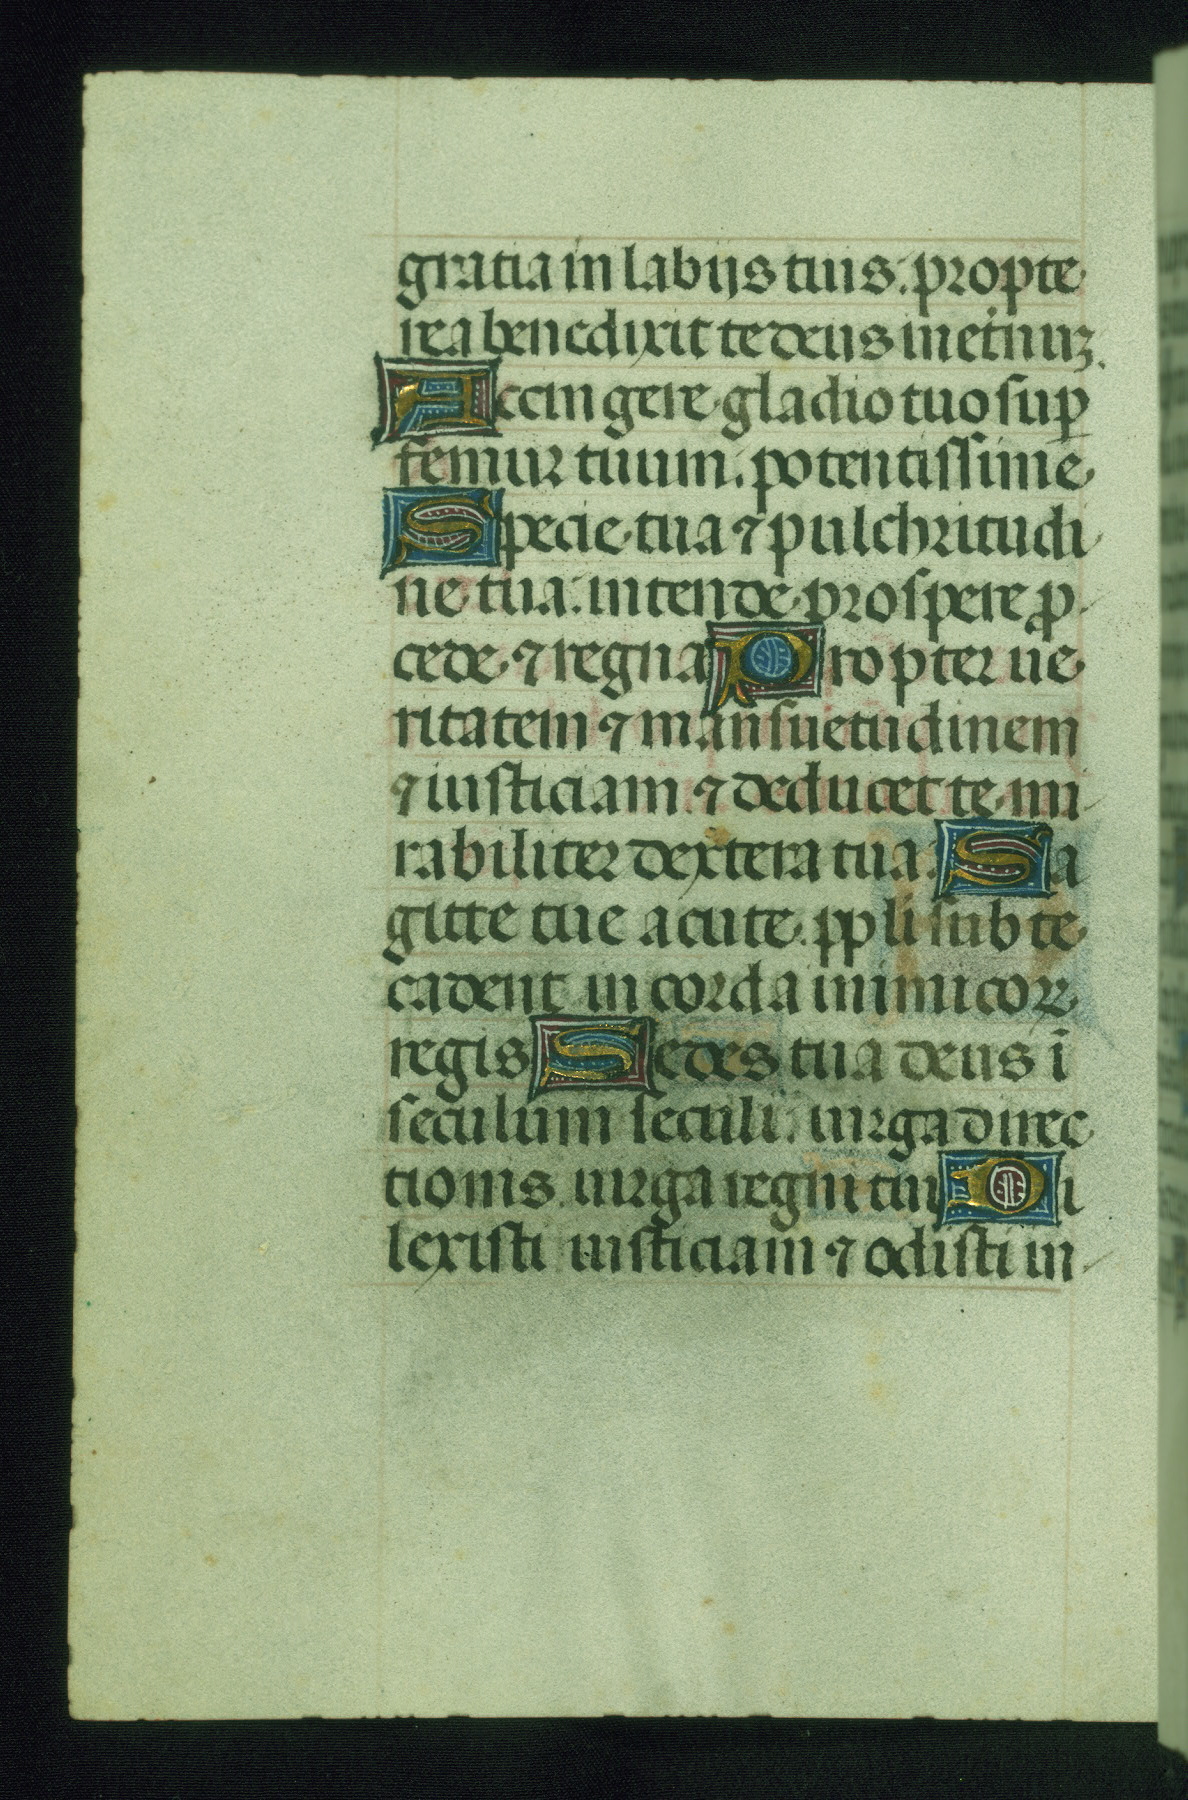 gratia in labijs tuis: propte
rea benedixit te deus in et̉nuꝫ.
Accingere gladio tuo suꝑ
femur tuum: potentissime
Specie tua ⁊ pulchritudi
ne tua: intende prospere ꝓ
cede ⁊ regna Propter ue
ritatem ⁊ mansuetudinem
⁊ iusticiam ⁊ deducet te mi
rabiliter dextera tua: Sa
gitte tue acute: ppli sub te
cadent in corda inimicoꝝ
regis Sedes tua deus ī
seculum seculi: uirga direc
tionis uirga regni tui Di
lexisti iusticiam ⁊ odisti in